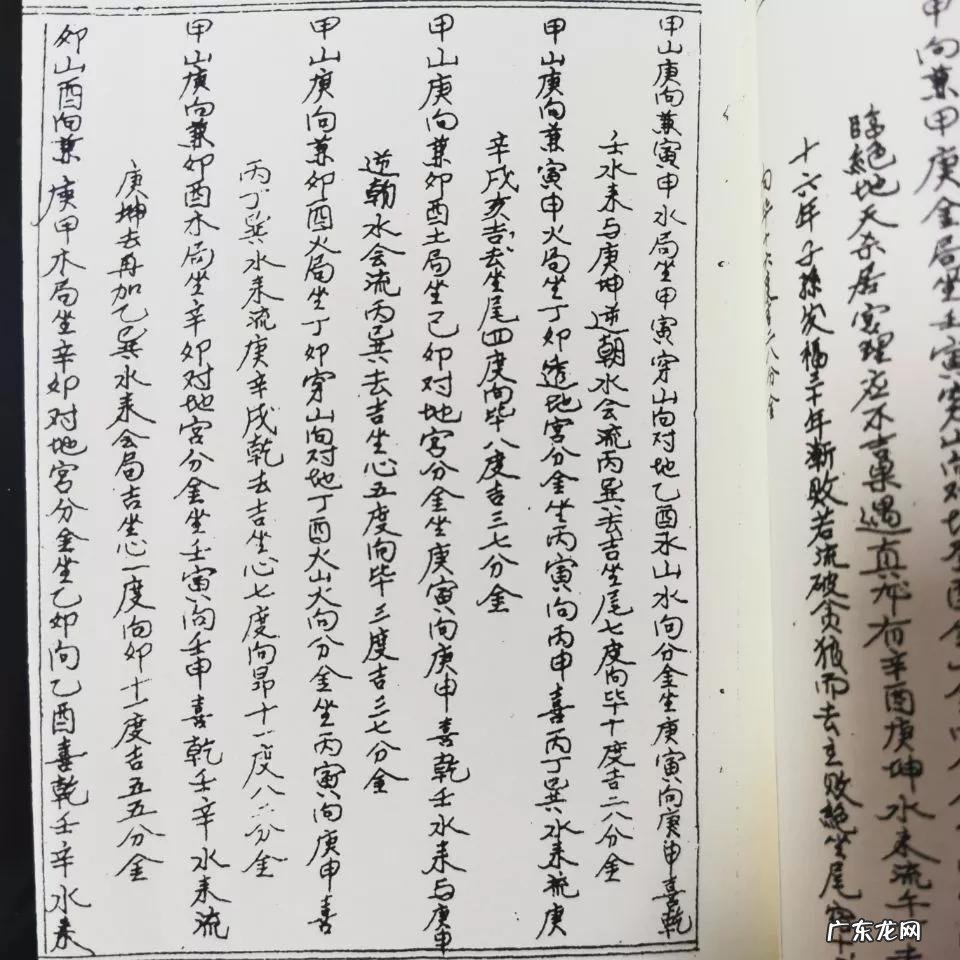 甲向兼甲庚金局坐壬寅穿山向对地
临绝地天杀居宫理应不言禀遇真 有辛酉庚坤水来流午
十六年子孙发福三十年渐败若流破贪狼而去主败绝坐尾
甲山庚向兼寅申水局坐甲寅穿山向对地乙酉水山水向分金坐庚寅向庚申喜乾
壬水来与庚坤逆朝水会流丙巽去吉坐尾七度向毕十度吉二八分金
甲山庚向兼寅申火局坐丁卯透地宫分金坐丙寅向丙申喜丙丁巽水来流庚
辛戌亥吉去坐尾四度向毕八度吉三七分金
甲山庚向兼卯酉土局坐己卯对地宫分金坐庚寅向庚申喜乾壬水来与庚申
逆朝水会流丙巽去吉坐心五度向毕三度吉三七分金
甲山庚向兼卯酉火局坐丁卯穿山向对地丁酉火山火向分金坐丙寅向庚申喜
丙丁巽水来流庚辛戌乾去吉坐心七度向昴十一度八二分金
甲山庚向兼卯酉木局坐辛卯对地宫分金坐壬寅向壬申喜乾壬辛水来流
庚坤去再加乙巽水来会局吉坐心一度向卯十一度吉五五分金
卯山酉向兼庚甲木局坐辛卯对地宫分金坐乙卯向乙酉喜乾壬辛水来
广东龙网